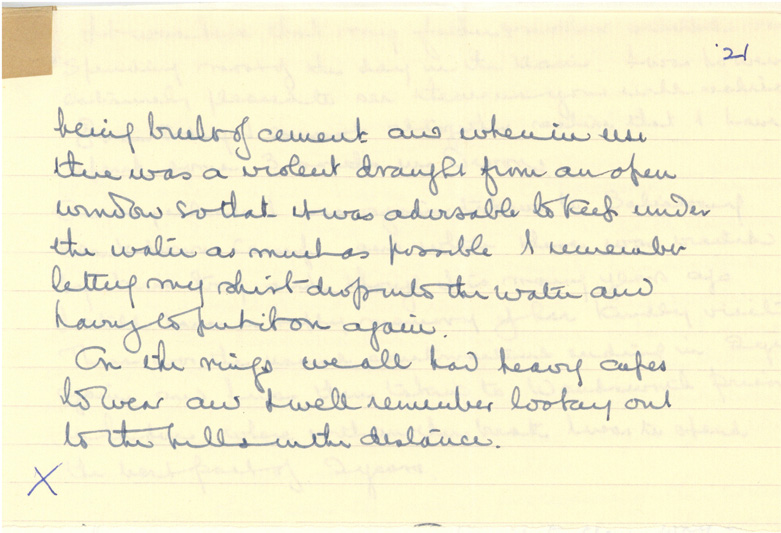 21
being built of cement and when in use
there was a violent draught from an open
window so that it was advisable to keep under
the water as much as possible I remember
letting my shirt drop into the water and
having to put it on again.
On the rings we all had heavy capes
to wear and I well remember looking out
to the hills in the distance.
X